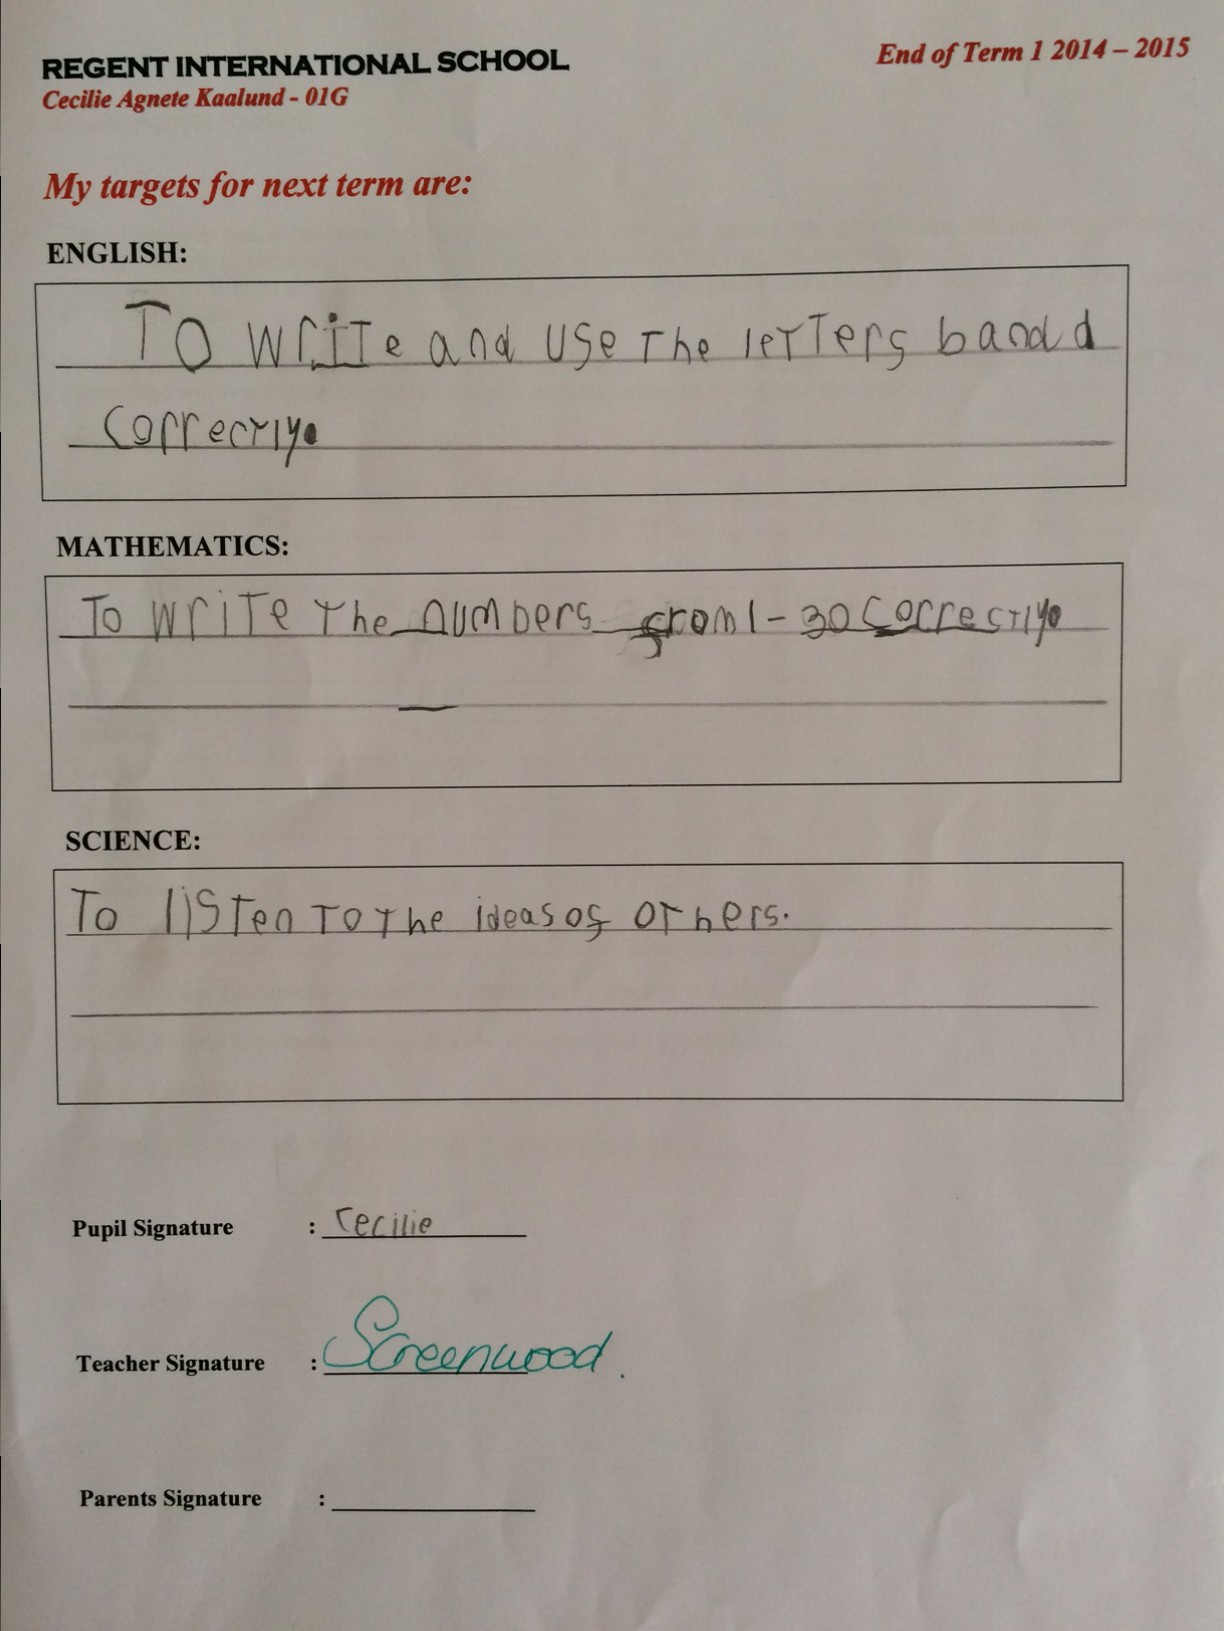 REGENT INTERNATIONAL SCHOOL
End of Term 1 2014 – 2015
Cecilie Agnete Kaalund - 01G
My targets for next term are:
ENGLISH:
To write and use the letters b and d
correctly.
MATHEMATICS:
To write the numbers from 1 - 30 correctly.
SCIENCE:
To listen to the ideas of others.
Pupil Signature : Cecilie
Teacher Signature : SGreenwood.
Parents Signature :